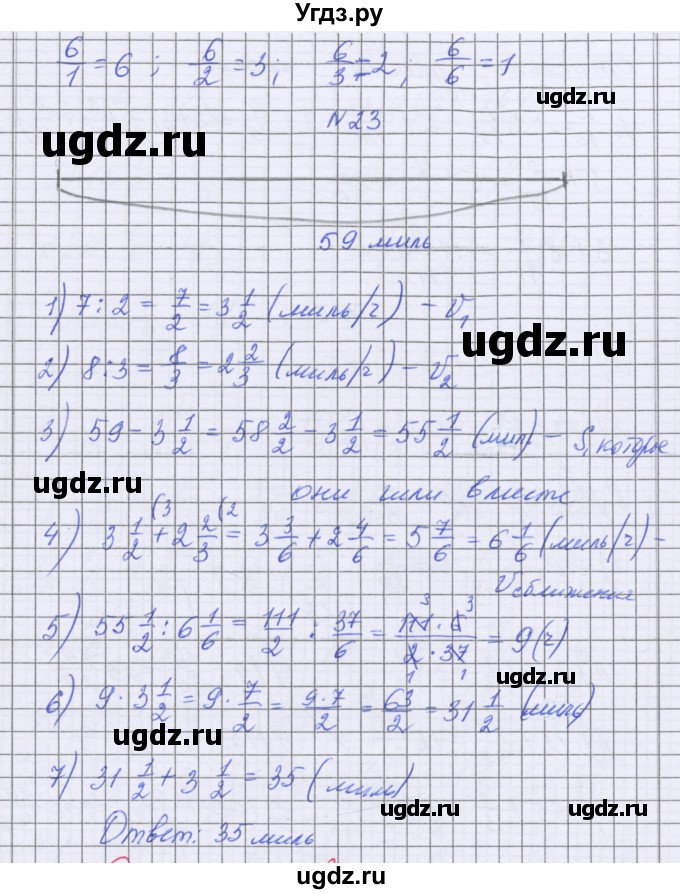 Угдз.ру
6/1 = 6 ; 6/2 = 3 ; 6/3 = 2 ; 6/6 = 1
ugdz.ru
N 23
ugdz.ru
59 миль
1) 7 : 2 = 7/2 = 3 1/2 (миль/ч) – V₁
ugdz.ru
2) 8 : 3 = 8/3 = 2 2/3 (миль/ч) – V₂
3) 59 – 3 1/2 = 58 2/2 – 3 1/2 = 55 1/2 (мил) – S, которое
ugdz.ru
они шли вместе
4) 3 1/2 (3 + 2 2/3 (2 = 3 3/6 + 2 4/6 = 5 7/6 = 6 1/6 (миль/ч) –
Vсближения
5) 55 1/2 : 6 1/6 = 111/2 : 37/6 = 111 · 6 / 2 · 37 = 9 (ч)
ugdz.ru
6) 9 · 3 1/2 = 9 · 7/2 = 9·7/2 = 63/2 = 31 1/2 (миль)
ugdz.ru
7) 31 1/2 + 3 1/2 = 35 (миль)
ugdz.ru
Ответ: 35 миль
ugdz.ru
ugdz.ru